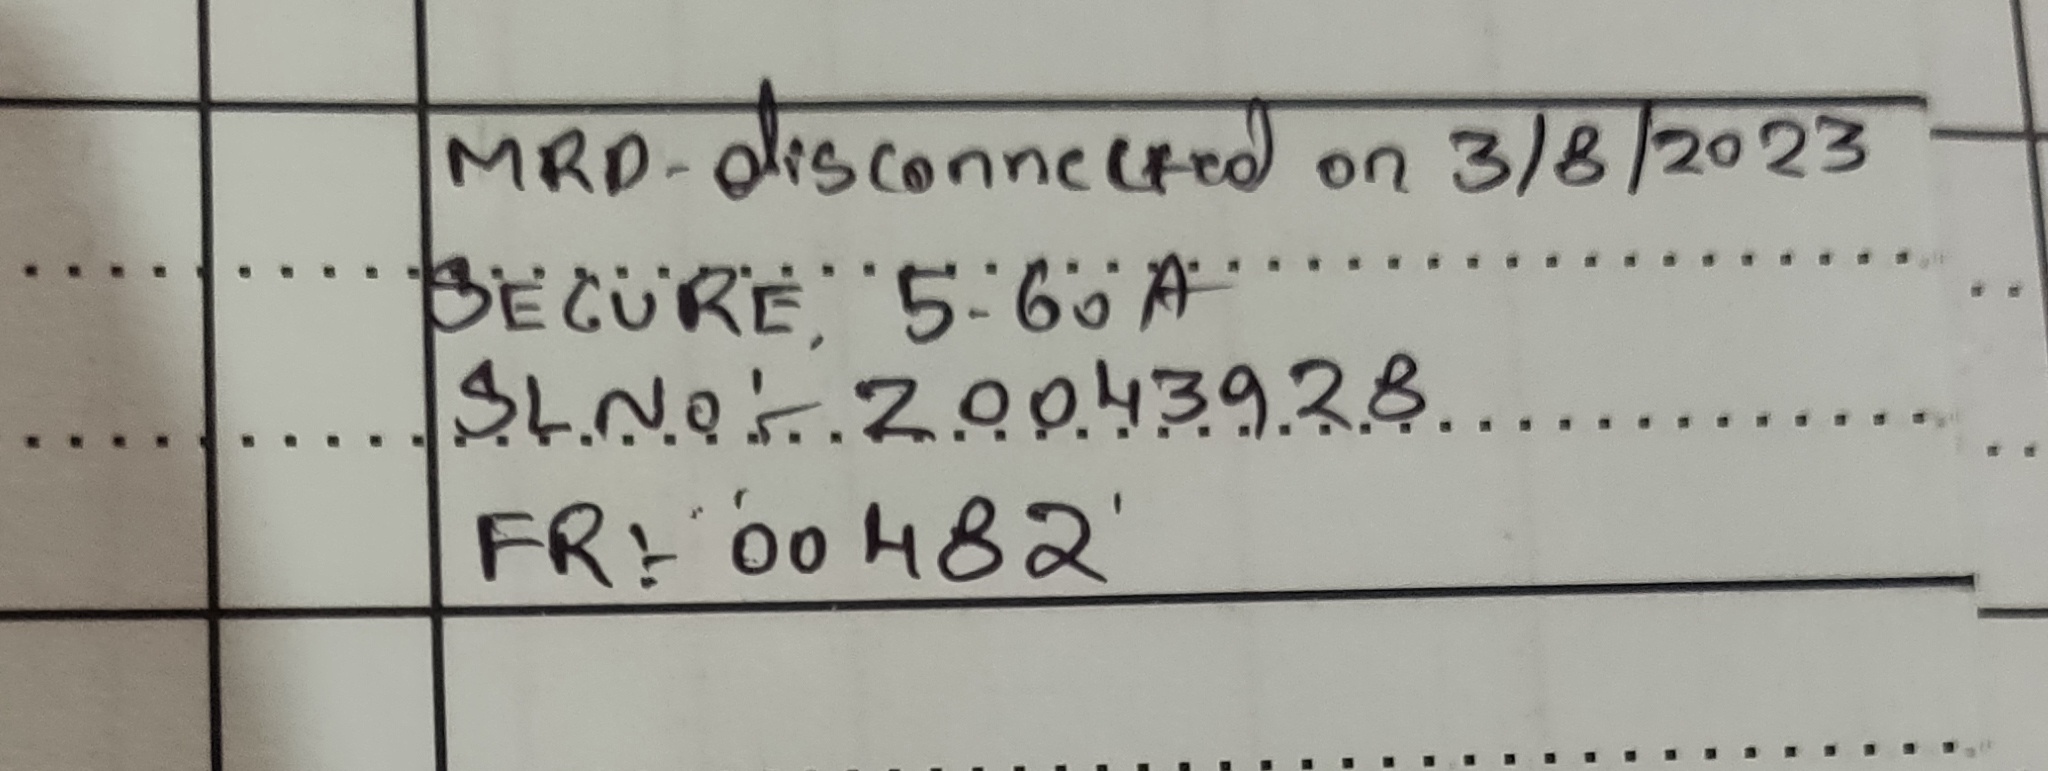 MRD-disconnected on 3/8/2023
SECURE, 5-60A
SL.No:- 20043928
FR:- '00482'